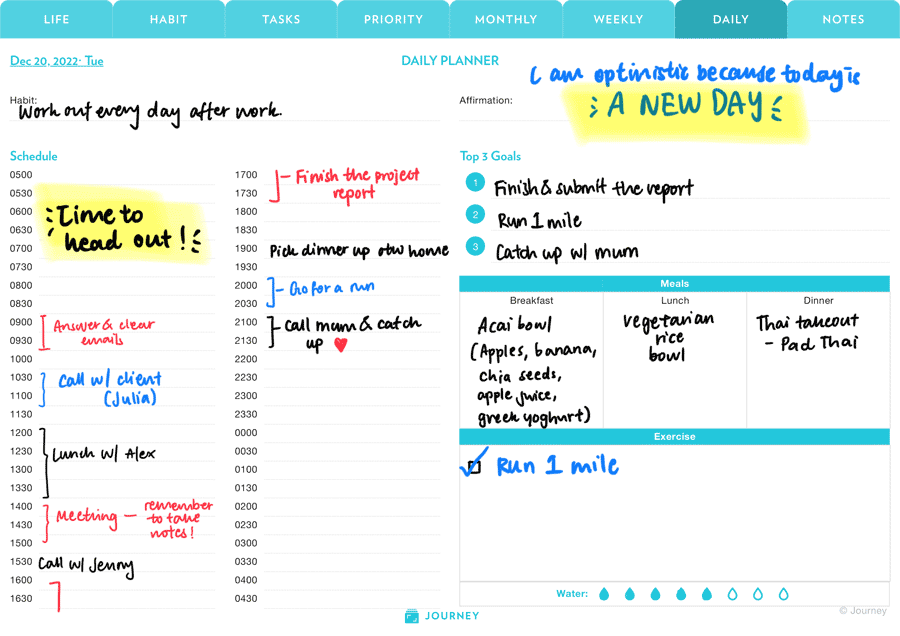 LIFE
HABIT
TASKS
PRIORITY
MONTHLY
WEEKLY
DAILY
NOTES
Dec 20, 2022· Tue
DAILY PLANNER
I am optimistic because today is
Habit:
Work out every day after work.
Affirmation:
A NEW DAY
Schedule
0500
0530
0600
0630
0700
0730
0800
0830
0900
0930
1000
1030
1100
1130
1200
1230
1300
1330
1400
1430
1500
1530
1600
1630
Time to
head out!
Answer & clear
emails
Call w/ client
(Julia)
Lunch w/ Alex
Meeting — remember
to take
notes!
Call w/ Jenny
1700
1730
1800
1830
1900
1930
2000
2030
2100
2130
2200
2230
2300
2330
0000
0030
0100
0130
0200
0230
0300
0330
0400
0430
- Finish the project
report
Pick dinner up otw home
- Go for a run
- Call mum & catch
up ❤
Top 3 Goals
1 Finish & submit the report
2 Run 1 mile
3 Catch up w/ mum
Meals
Breakfast
Acai bowl
(Apples, banana,
chia seeds,
apple juice,
greek yoghurt)
Lunch
vegetarian
rice
bowl
Dinner
Thai takeout
- Pad Thai
Exercise
Run 1 mile
Water:
JOURNEY
© Journey